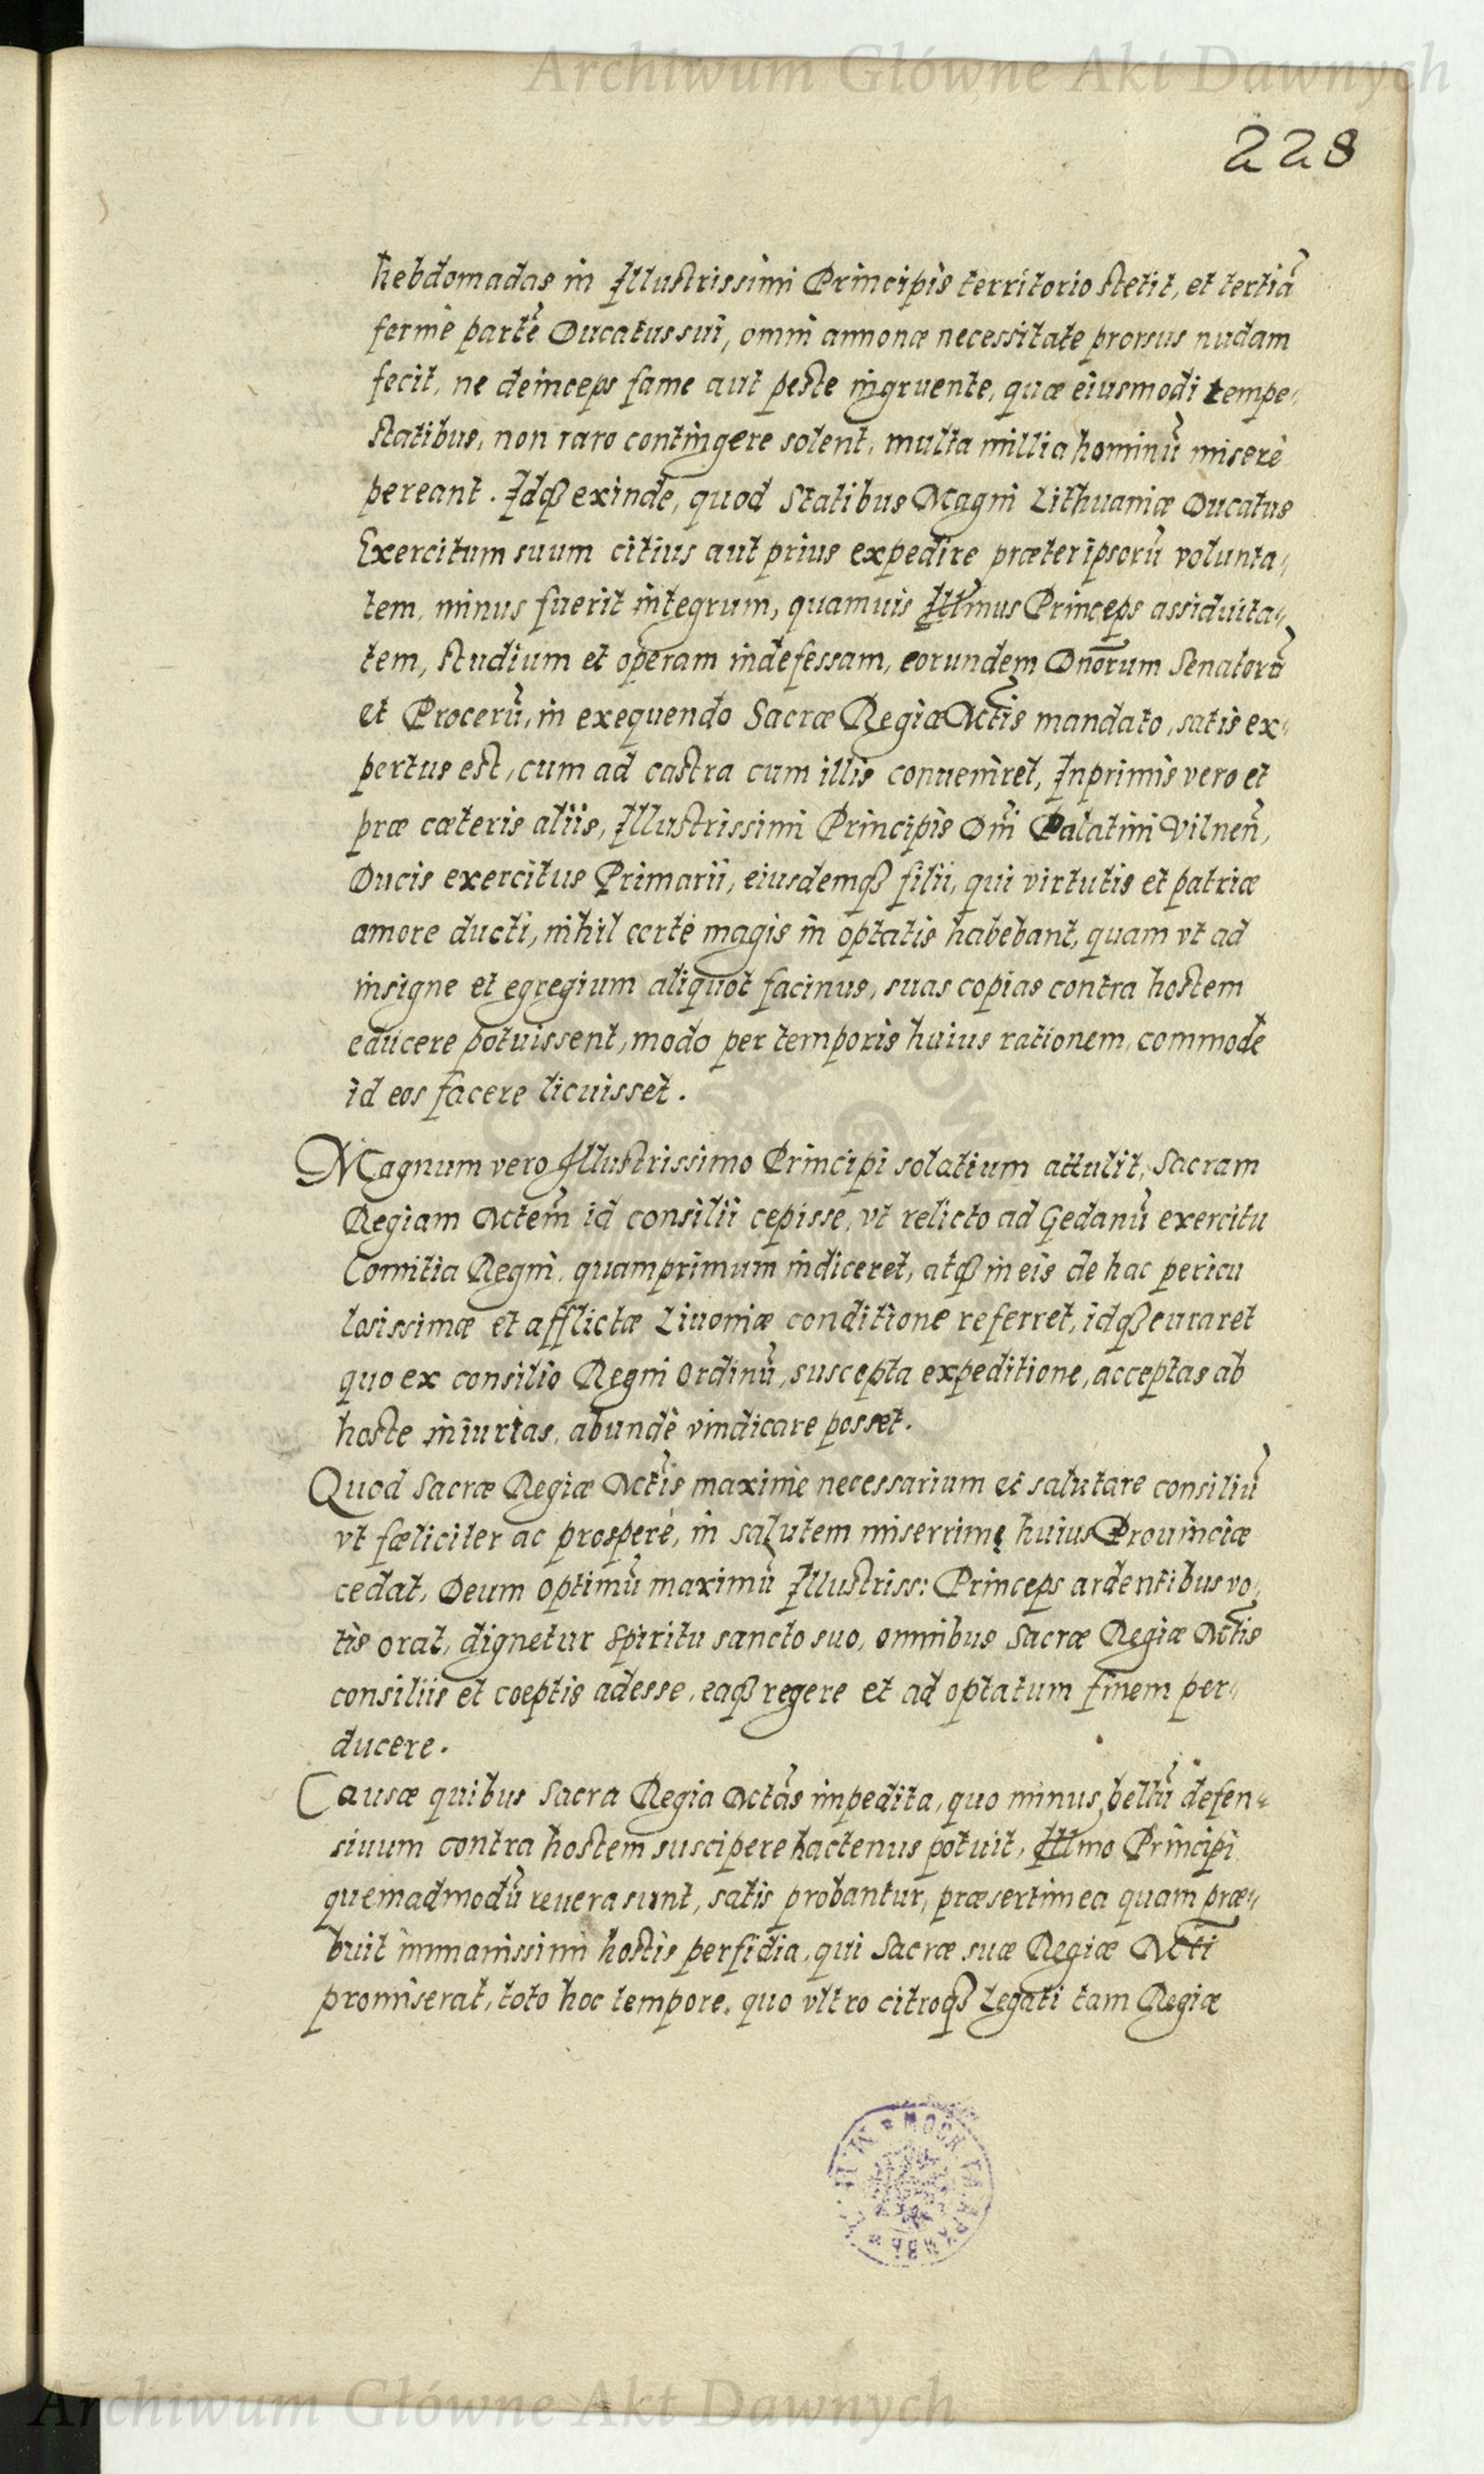 Archiwum Główne Akt Dawnych
228
hebdomadas in Illustrissimi Principis territorio stetit, et tertiã
fermè partẽ Ducatus sui, omni annonæ necessitate prorsus nudam
fecit, ne deinceps fame aut peste ingruente, quæ eiusmodi tempe„
statibus, non raro contingere solent, multa millia hominũ miserè
pereant. Idqȝ exinde, quod Statibus Magni Lithuaniæ Ducatus
Exercitum suum citius aut prius expedire præter ipsorũ volunta„
tem, minus fuerit integrum, quamuis Illmus Princeps assiduita„
tem, studium et operam indefessam, eorundem Dnorum Senatorũ
et Procerũ, in exequendo Sacræ Regiæ Mctis mandato, satis ex„
pertus est, cum ad castra cum illis conueniret, Inprimis vero et
præ cæteris aliis, Illustrissimi Principis Dñi Palatini Vilneñ,
Ducis exercitus Primarii, eiusdemqȝ filii, qui virtutis et patriæ
amore ducti, nihil certè magis in optatis habebant, quam vt ad
insigne et egregium aliquot facinus, suas copias contra hostem
educere potuissent, modo per temporis huius rationem, commodè
id eos facere licuisset.
Magnum vero Illustrissimo Principi solatium attulit, Sacram
Regiam Mctem id consilii cepisse, vt relicto ad Gedanũ exercitu
Comitia Regni, quamprimum indiceret, atqȝ in eis de hac pericu
losissimæ et afflictæ Liuoniæ conditione referret, idqȝ curaret
quo ex consilio Regni Ordinũ, suscepta expeditione, acceptas ab
hoste iniurias, abundè vindicare posset.
Quod Sacræ Regiæ Mctis maximè necessarium et salutare consiliũ
vt fœliciter ac prosperè, in salutem miserrimę huius Prouinciæ
cedat, Deum optimũ maximũ Illustriss: Princeps ardentibus vo„
tis orat, dignetur Spiritu sancto suo, omnibus Sacræ Regiæ Mctis
consiliis et coeptis adesse, eaqȝ regere et ad optatum finem per„
ducere.
Causæ quibus Sacra Regia Mctas impedita, quo minus bellũ defen„
siuum contra hostem suscipere hactenus potuit, Illmo Principi
quemadmodũ reuera sunt, satis probantur, præsertim ea quam præ„
buit immanissimi hostis perfidia, qui Sacræ suæ Regiæ Mcti
promiserat, toto hoc tempore, quo vltro citroqȝ Legati tam Regiæ
Archiwum Główne Akt Dawnych